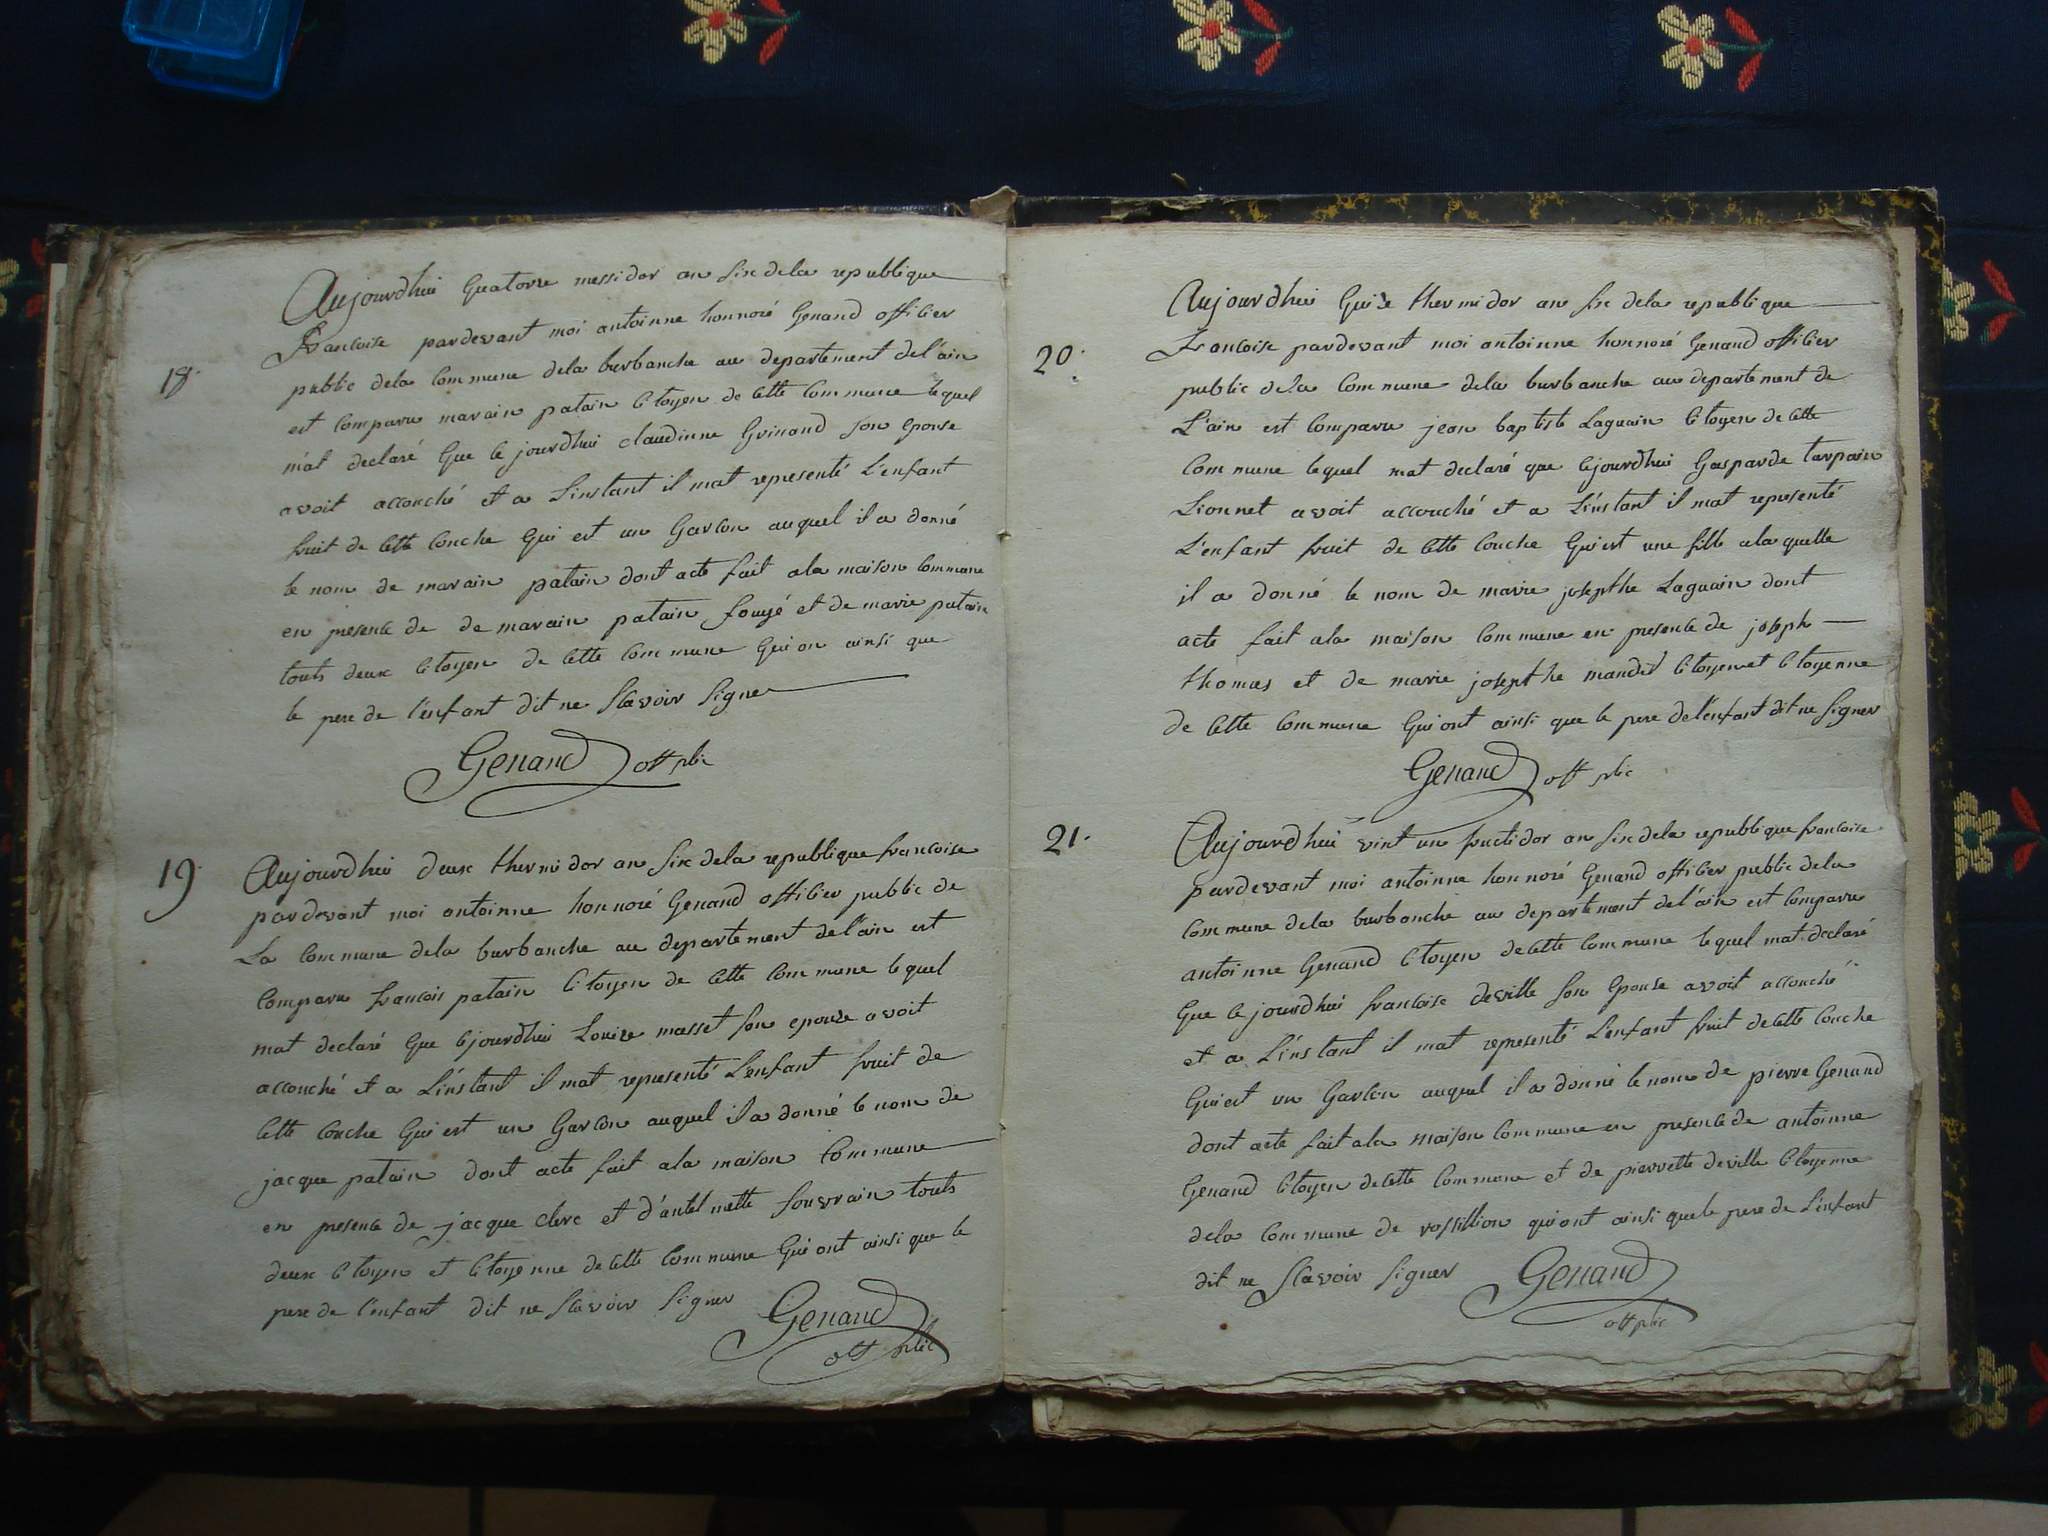 18.
Aujourdhui Quatorze messidor an six dela republique
francoise pardevant moi antoinne honnoré Genand officier
public dela commune dela burbanche au departement del'ain
est comparu marain patain citoyen de cette commune lequel
m'at declaré que cejourdhui claudinne Guinand son epouse
avoit accouché et a L'instant il mat representé L'enfant
fruit de cette couche qui est un Garcon auquel il a donné
le nom de marain patain dont acte fait ala maison commune
en presence de de marain patain fouyé et de marie patain
touts deux citoyen de cette commune qui on ainsi que
le pere de l'enfant dit ne scavoir signer
Genand off plic
19.
Aujourdhui deux thermidor an six dela republique francoise
pardevant moi antoinne honnoré Genand officier public de
La commune dela burbanche au departement del'ain est
comparu francois patain citoyen de cette commune lequel
mat declaré que cejourdhui Louize masset son epouze avoit
accouché et a L'instant il mat representé L'enfant fruit de
cette couche qui est un Garcon auquel il a donné le nom de
jacque patain dont acte fait ala maison commune
en presence de jacque clerc et d'antelmette souvrain touts
deux citoyen et citoyenne de cette commune qui ont ainsi que le
pere de l'enfant dit ne scavoir signer Genand
off plic
20.
Aujourdhui Quize thermidor an six dela republique
francoise pardevant moi antoinne honnoré Genand officier
public dela commune dela burbanche au departement de
L'ain est comparu jean baptiste Laguain citoyen de cette
commune lequel mat declaré que cejourdhui Gasparde tarpain
Lionnet avoit accouché et a L'instant il mat representé
L'enfant fruit de cette couche qui est une fille ala quelle
il a donné le nom de marie josepthe Laguain dont
acte fait ala maison commune en presence de joseph
thomas et de marie josepthe mandit citoyen et citoyenne
de cette commune qui ont ainsi que le pere de l'enfant dit ne signer
Genand off plic
21.
Aujourdhui vint un fructidor an six dela republique francoise
pardevant moi antoinne honnoré Genand officier public dela
commune dela burbanche au departement del'ain est comparu
antoinne Genand citoyen de cette commune lequel mat declaré
que cejourdhui francoise deville son epouse avoit accouché
et a L'instant il mat representé L'enfant fruit de cette couche
qui est un Garcon auquel il a donné le nom de pierre Genand
dont acte fait ala maison commune en presence de antoinne
Genand citoyen de cette commune et de pierrette deville citoyenne
dela commune de rossillion qui ont ainsi que le pere de L'enfant
dit ne scavoir signer Genand
off plic